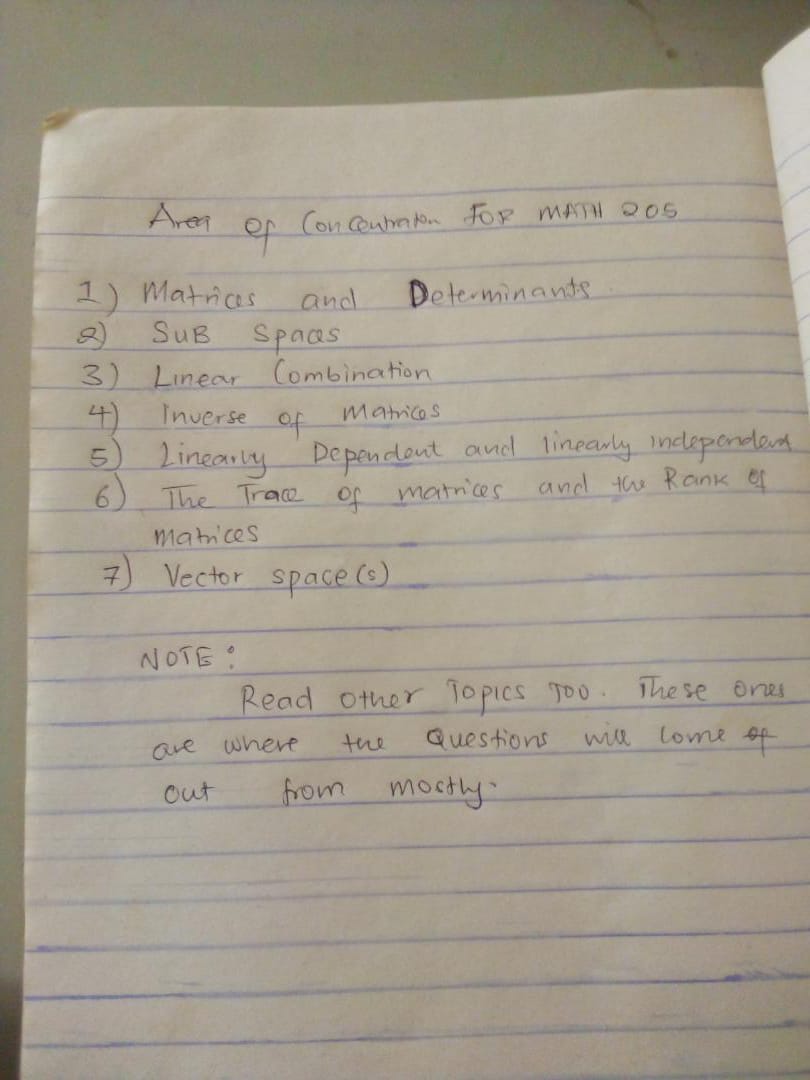 Area of Concentration FOR MATH 205
1) Matrices and Determinants.
2) SUB Spaces
3) Linear Combination
4) Inverse of Matrices
5) Linearly Dependent and linearly independent
6) The Trace of matrices and the Rank of
matrices
7) Vector space(s)
NOTE:
Read other Topics TOO. These ones
are where the Questions will come of
out from mostly.